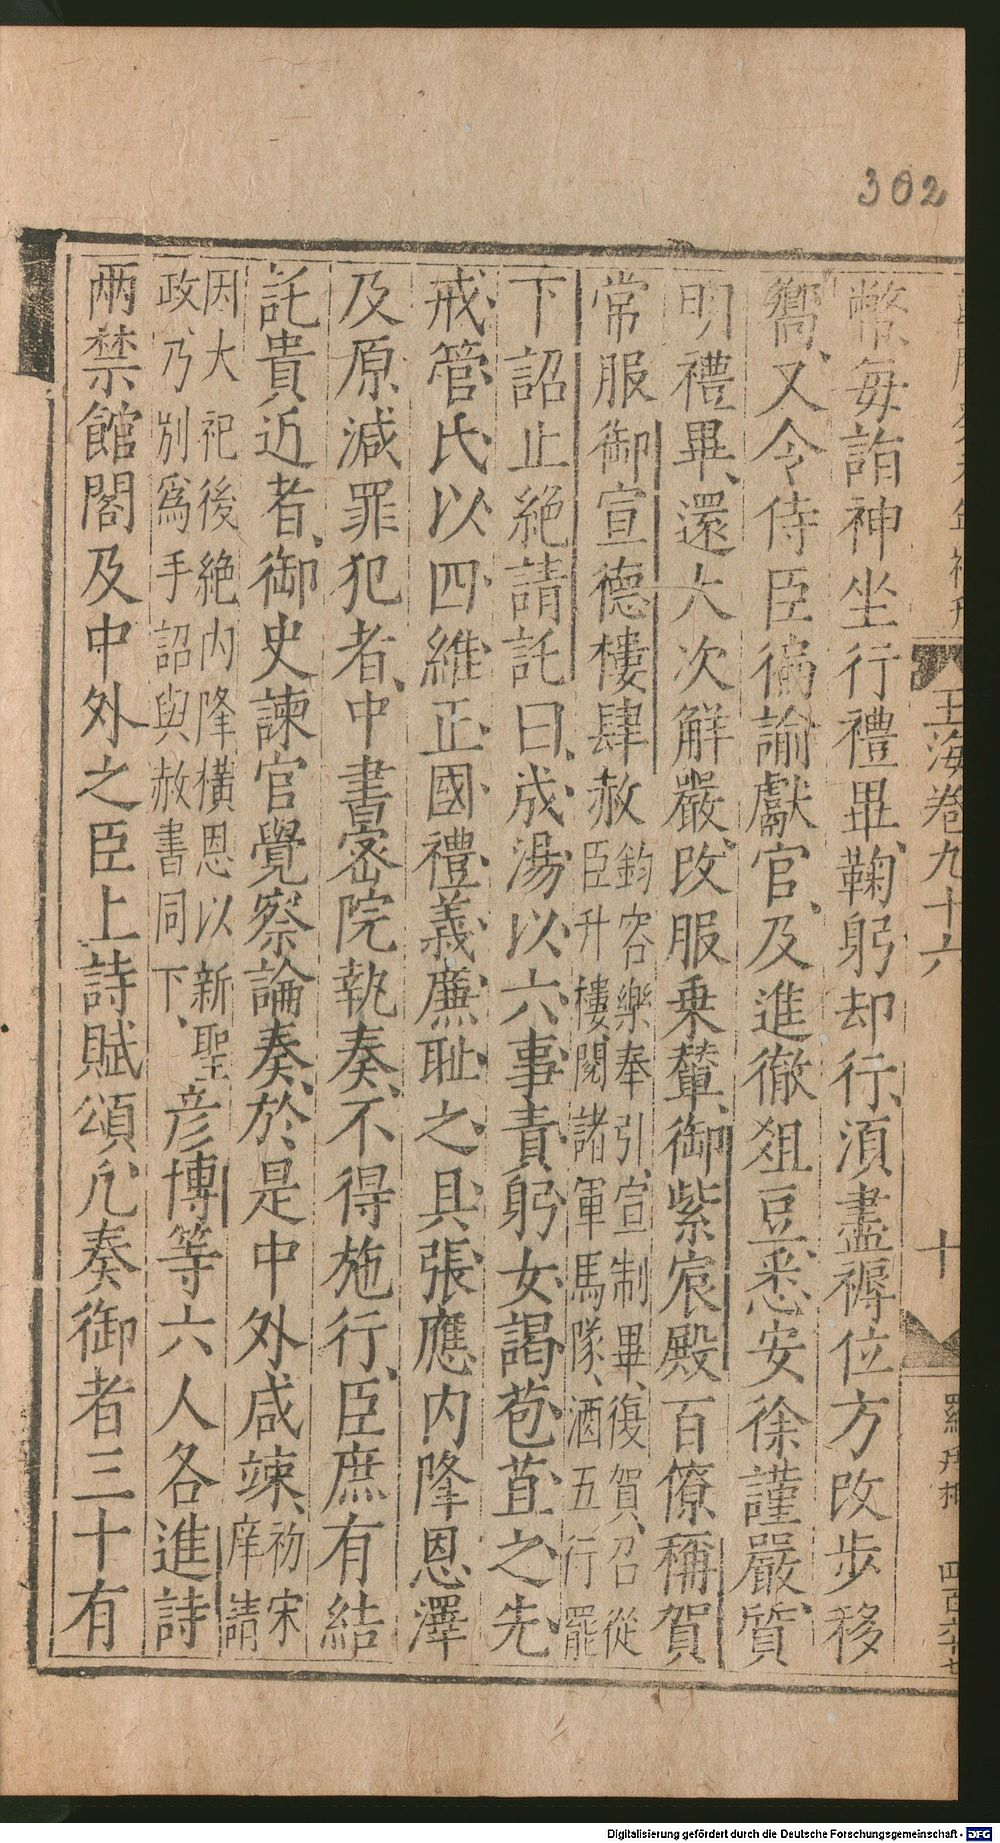 302
玉海卷九十六
十
幣每詣神坐行禮畢鞠躬却行、須盡褥位方改步移
嚮、又令侍臣徧諭獻官、及進徹俎豆、悉安徐謹嚴、質
明禮畢、還大次解嚴、改服乗輦、御紫宸殿百僚稱賀
常服御宣德樓肆赦鈞容樂奉引、宣制畢、復賀、召從
臣升樓、閱諸軍馬隊、酒五行罷
下詔止絶請託曰、成湯以六事責躬女謁苞苴之先
戒、管氏以四維正國禮義廉恥之具、張應内降恩澤
及原減罪犯者、中書宻院執奏、不得施行、臣庶有結
託貴近者、御史諫官覺察論奏、於是中外咸竦、初宋
庠請
因大祀後絶内降橫恩以新聖
政乃別爲手詔與赦書同下、彦博等六人各進詩
兩禁館閣及中外之臣上詩賦頌、凡奏御者三十有
Digitalisierung gefördert durch die Deutsche Forschungsgemeinschaft - DFG